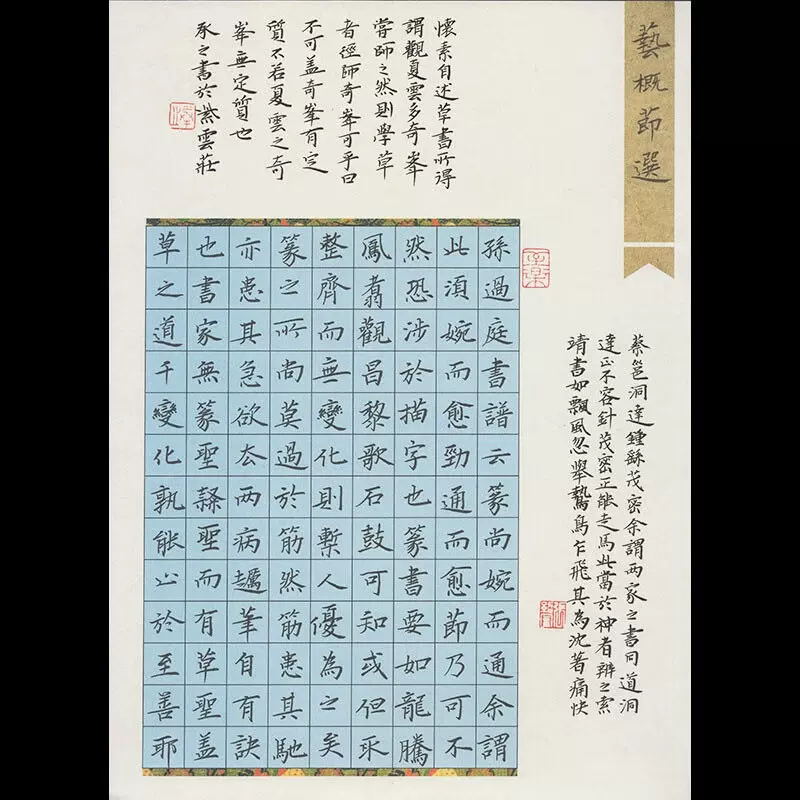 藝概節選
蔡邕洞達鍾繇茂密余謂兩家之書同道洞
達正不容針茂密正能走馬此當於神者辨之索
靖書如飄風忽舉鷙鳥乍飛其為沈著痛快
孫過庭書譜云篆尚婉而通余謂
此須婉而愈勁通而愈節乃可不
然恐涉於描字也篆書要如龍騰
鳳翥觀昌黎歌石鼓可知或但取
整齊而無變化則槧人優為之矣
篆之所尚莫過於筋然筋患其馳
亦患其急欲去兩病趯筆自有訣
也書家無篆聖隸聖而有草聖蓋
草之道千變化孰能止於至善耶
懷素自述草書所得
謂觀夏雲多奇峯
嘗師之然則學草
者徑師奇峯可乎曰
不可盖奇峯有定
質不若夏雲之奇
峯無定質也
承之書於紫雲莊